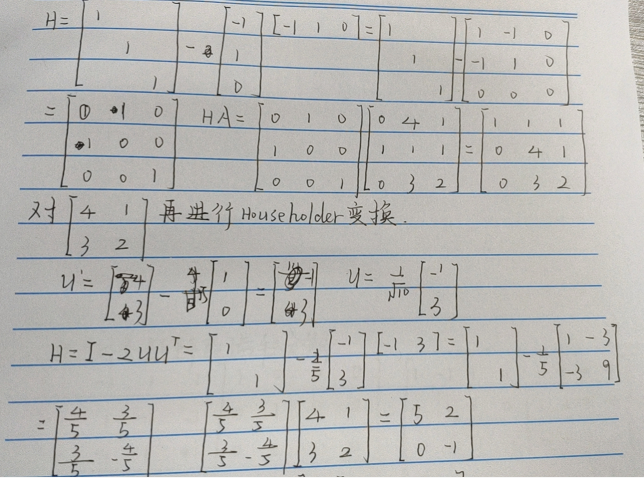 H = [1 ; 1 ; 1] - [-1 ; 1 ; 0] [-1 1 0] = [1 ; 1 ; 1] - [1 -1 0 ; -1 1 0 ; 0 0 0]
= [0 1 0 ; 1 0 0 ; 0 0 1] HA = [0 1 0 ; 1 0 0 ; 0 0 1] [0 4 1 ; 1 1 1 ; 0 3 2] = [1 1 1 ; 0 4 1 ; 0 3 2]
对 [4 1 ; 3 2] 再进行Householder变换.
U' = [4 ; 3] - 5 [1 ; 0] = [-1 ; 3] U = 1/√10 [-1 ; 3]
H = I - 2UU^T = [1 ; 1] - 1/5 [-1 ; 3] [-1 3] = [1 ; 1] - 1/5 [1 -3 ; -3 9]
= [4/5 3/5 ; 3/5 -4/5] [4/5 3/5 ; 3/5 -4/5] [4 1 ; 3 2] = [5 2 ; 0 -1]